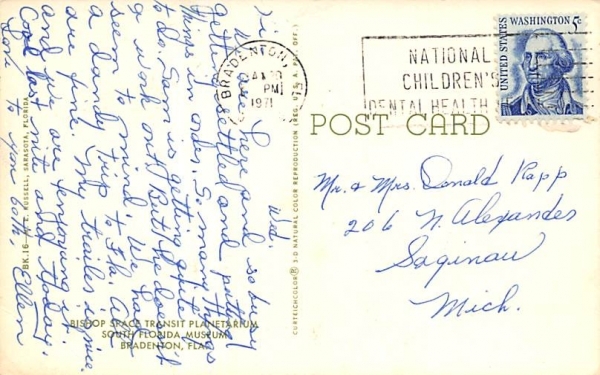 Wed.
Hi
We are here and so busy
getting settled and putting
things in order. So many things
to do. Sam is getting quite
a work out! But he doesn't
seem to mind. We had
a dandy trip to Fla. All
are fine. My trailer is nice
and we are tenning it.
Cool last nite and today.
Love to you both, Ellen
BISHOP SPACE TRANSIT PLANETARIUM
SOUTH FLORIDA MUSEUM
BRADENTON, FLA.
BK.16— E. RUSSELL, SARASOTA, FLORIDA
CURTEICHCOLOR® 3-D NATURAL COLOR REPRODUCTION (REG. U.S.A. PAT. OFF.)
BRADENTON,
PM
1971
NATIONAL
CHILDREN'S
DENTAL HEALTH
UNITED STATES
WASHINGTON 5c
POST CARD
Mr. & Mrs. Donald Rapp
206 N. Alexander
Saginaw
Mich.